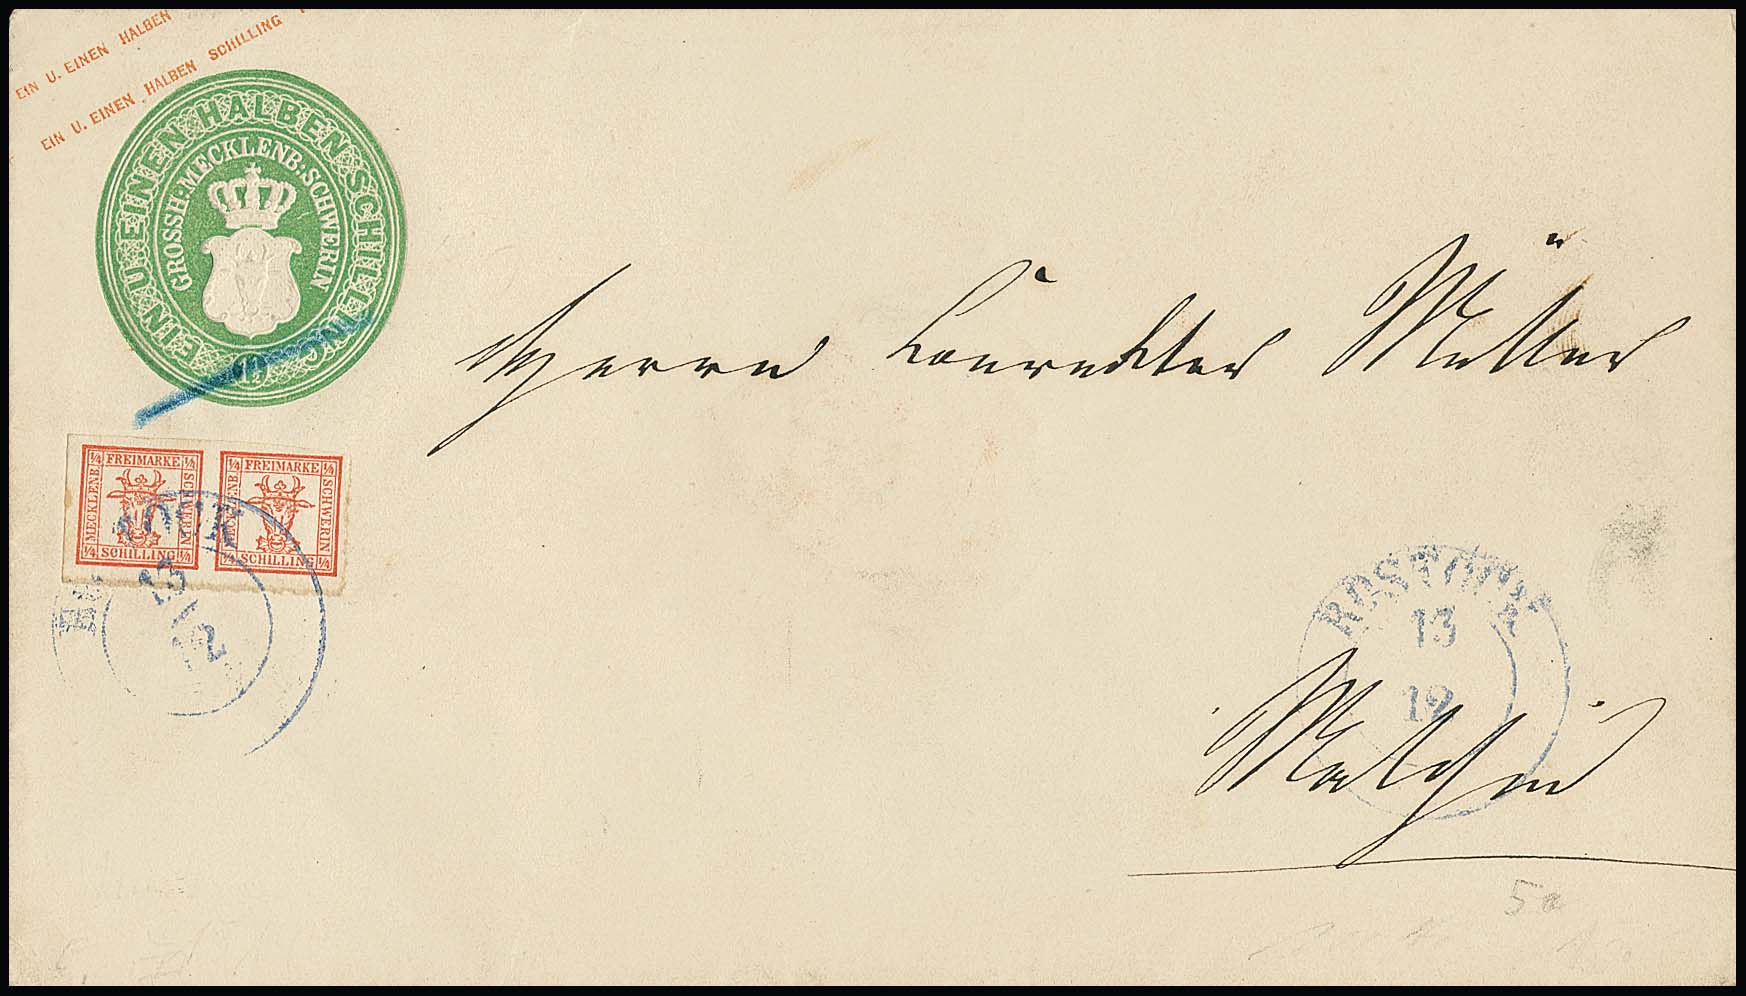 EIN U. EINEN HALBEN
EIN U. EINEN HALBEN SCHILLING
EIN U. EINEN HALBEN SCHILLING
GROSSH: MECKLENB: SCHWERIN
1½
¼ FREIMARKE ¼
MECKLENB
SCHWERIN
¼ SCHILLING ¼
¼ FREIMARKE ¼
MECKLENB
SCHWERIN
¼ SCHILLING ¼
Herrn Conrektor Müller
ROSTOCK
13
12
ROSTOCK
13
12
Malchin
5a